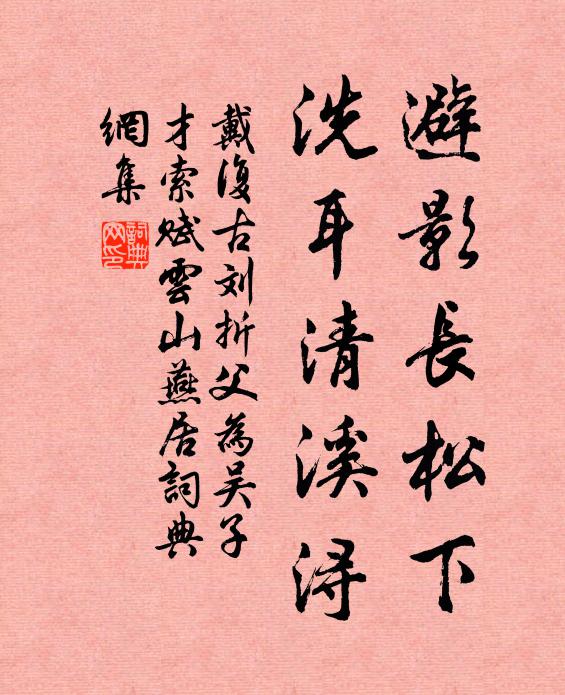 避影長松下
洗耳清溪潯
戴復古刘折父為吴子
才索赋雲山燕居詞典
網集
詞典
网印